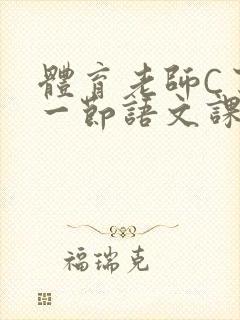 體育老師C
一節語文課
福瑞克